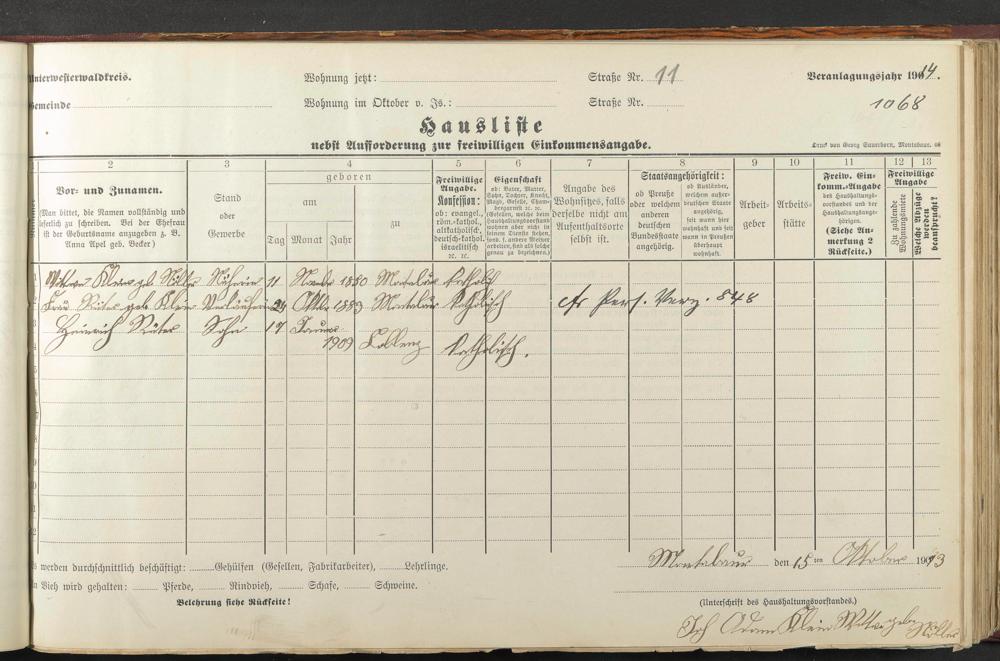 Unterwesterwaldkreis. Wohnung jetzt: Straße Nr. 11 Veranlagungsjahr 1914.
Gemeinde Wohnung im Oktober v. Js.: Straße Nr. 1068
Hausliste
nebst Aufforderung zur freiwilligen Einkommensangabe.
Druck von Georg Sauerborn, Montabaur.
2 3 4 5 6 7 8 9 10 11 12 13
Vor- und Zunamen.
(Man bittet, die Namen vollständig und
leserlich zu schreiben. Bei der Ehefrau
ist der Geburtsname anzugeben z. B.
Anna Apel geb. Becker)
Stand
oder
Gewerbe
geboren
am
zu
Tag Monat Jahr
Freiwillige
Angabe.
Konfession:
ob: evangel.,
röm.-kathol.,
altkatholisch,
deutsch-kathol.
israelitisch
ꝛc. ꝛc.
Eigenschaft
ob: Vater, Mutter,
Sohn, Tochter, Knecht,
Magd, Geselle, Cham-
bergarnist ꝛc. ꝛc.
(Gesellen, welche beim
Haushaltungsvorstand
wohnen aber nicht in
seinem Dienste stehen,
sind als solche
genau zu bezeichnen.)
Angabe des
Wohnsitzes, falls
derselbe nicht am
Aufenthaltsorte
selbst ist.
Staatsangehörigkeit:
ob Preuße
oder welchem
anderen
deutschen
Bundesstaate
angehörig.
ob Ausländer,
welchem außer-
deutschen Staate
angehörig,
seit wann hier
wohnhaft und seit
wann in Preußen
überhaupt
wohnhaft.
Arbeit-
geber
Arbeits-
stätte
Freiw. Ein-
komm.-Angabe
des Haushaltungs-
vorstandes und der
Haushaltungsange-
hörigen.
(Siehe An-
merkung 2
Rückseite.)
Freiwillige
Angabe
Zu zahlende
Wohnungsmiete
Welche Abzüge
werden
beansprucht?
Klein gb 11 1850 Montabaur Katholisch
Frau Rüter geb. Klein Verkäuferin 24 Oktbr 1883 Montabaur Katholisch cfr Pers. Verz. 848
Heinrich Rüter Sohn 17 Januar
1909 Coblenz Katholisch.
Es werden durchschnittlich beschäftigt: Gehülfen (Gesellen, Fabrikarbeiter), Lehrlinge.
An Vieh wird gehalten: Pferde, Rindvieh, Schafe, Schweine.
Belehrung siehe Rückseite!
Montabaur den 15ten Oktober 1913
(Unterschrift des Haushaltungsvorstandes.)
Joh Adam Klein Witwe gebor Müller